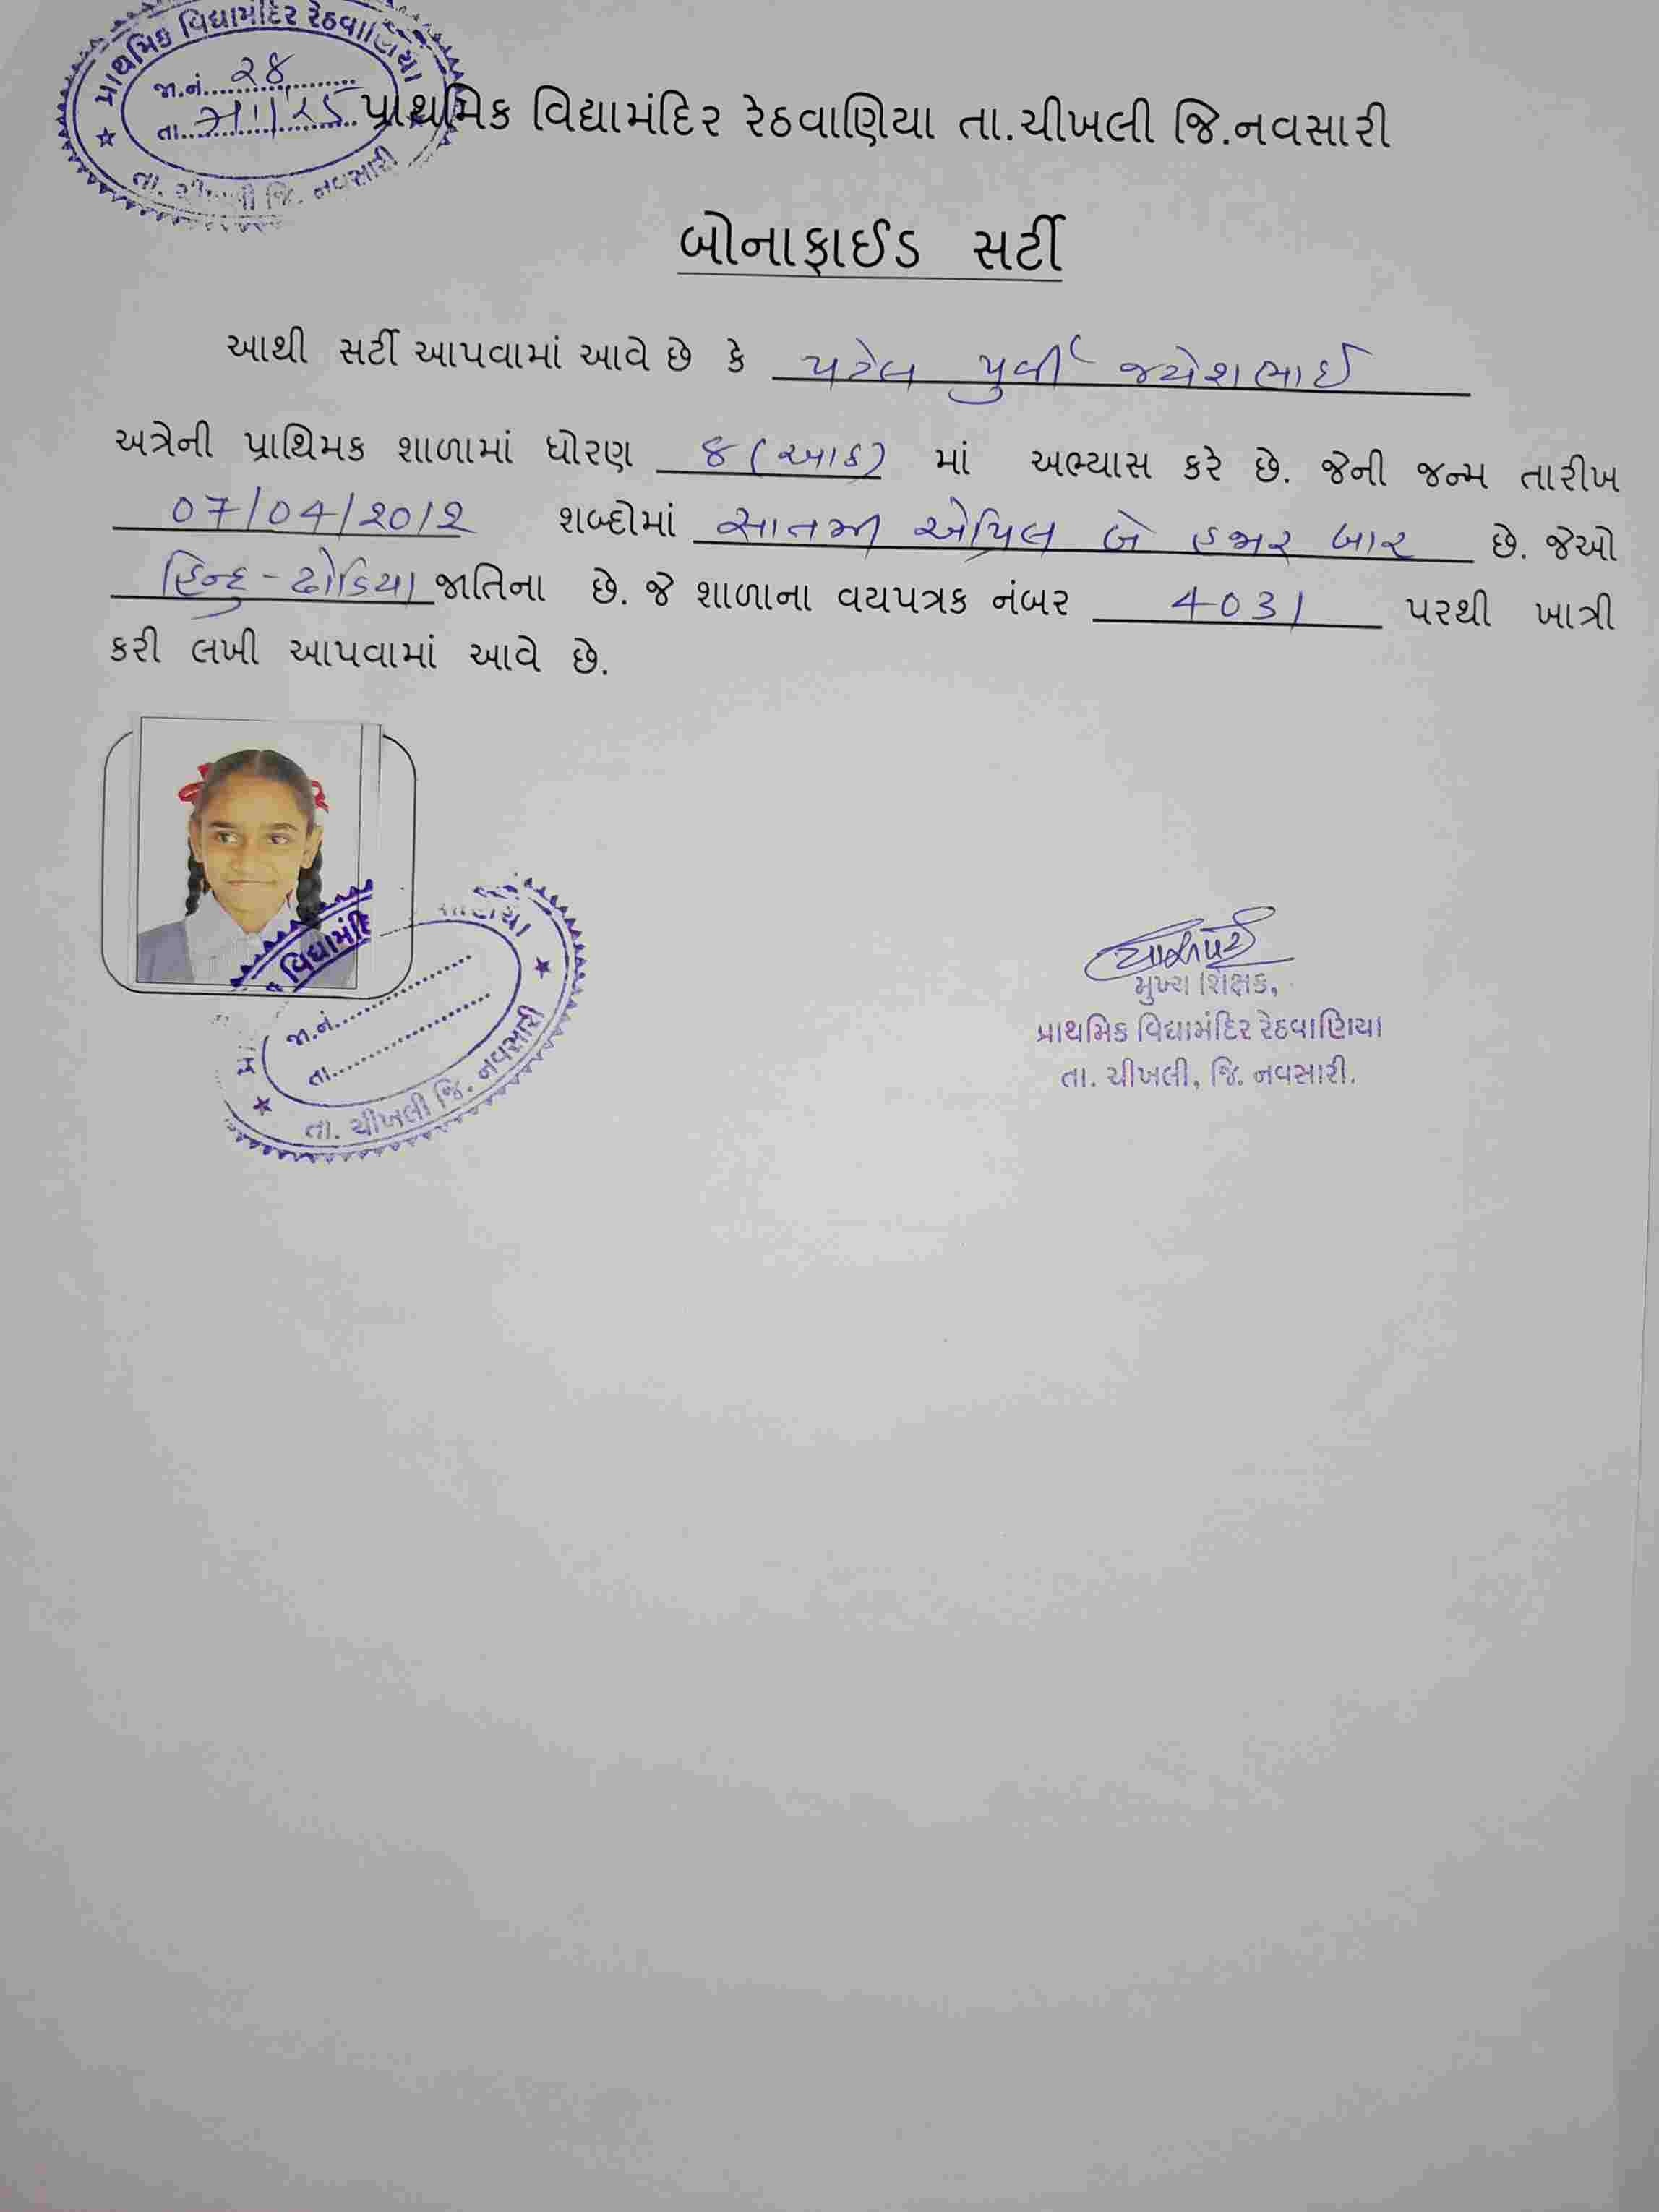 પ્રાથમિક વિદ્યામંદિર રેઠવાણિયા
જા.નં. ૨૪
તા.
તા. ચીખલી જિ. નવસારી
પ્રાથમિક વિદ્યામંદિર રેઠવાણિયા તા.ચીખલી જિ.નવસારી
બોનાફાઈડ સર્ટી
આથી સર્ટી આપવામાં આવે છે કે પટેલ પુર્વી જયેશભાઈ
અત્રેની પ્રાથિમક શાળામાં ધોરણ ૮ (આઠ) માં અભ્યાસ કરે છે. જેની જન્મ તારીખ
07/04/2012 શબ્દોમાં સાતમી એપ્રિલ બે હજાર બાર છે. જેઓ
હિન્દુ - ઢોડિયા જાતિના છે. જે શાળાના વયપત્રક નંબર 4031 પરથી ખાત્રી
કરી લખી આપવામાં આવે છે.
વિદ્યામંદિ
જા.નં.
તા.
તા. ચીખલી જિ. નવસારી
મુખ્ય શિક્ષક,
પ્રાથમિક વિદ્યામંદિર રેઠવાણિયા
તા. ચીખલી, જિ. નવસારી.